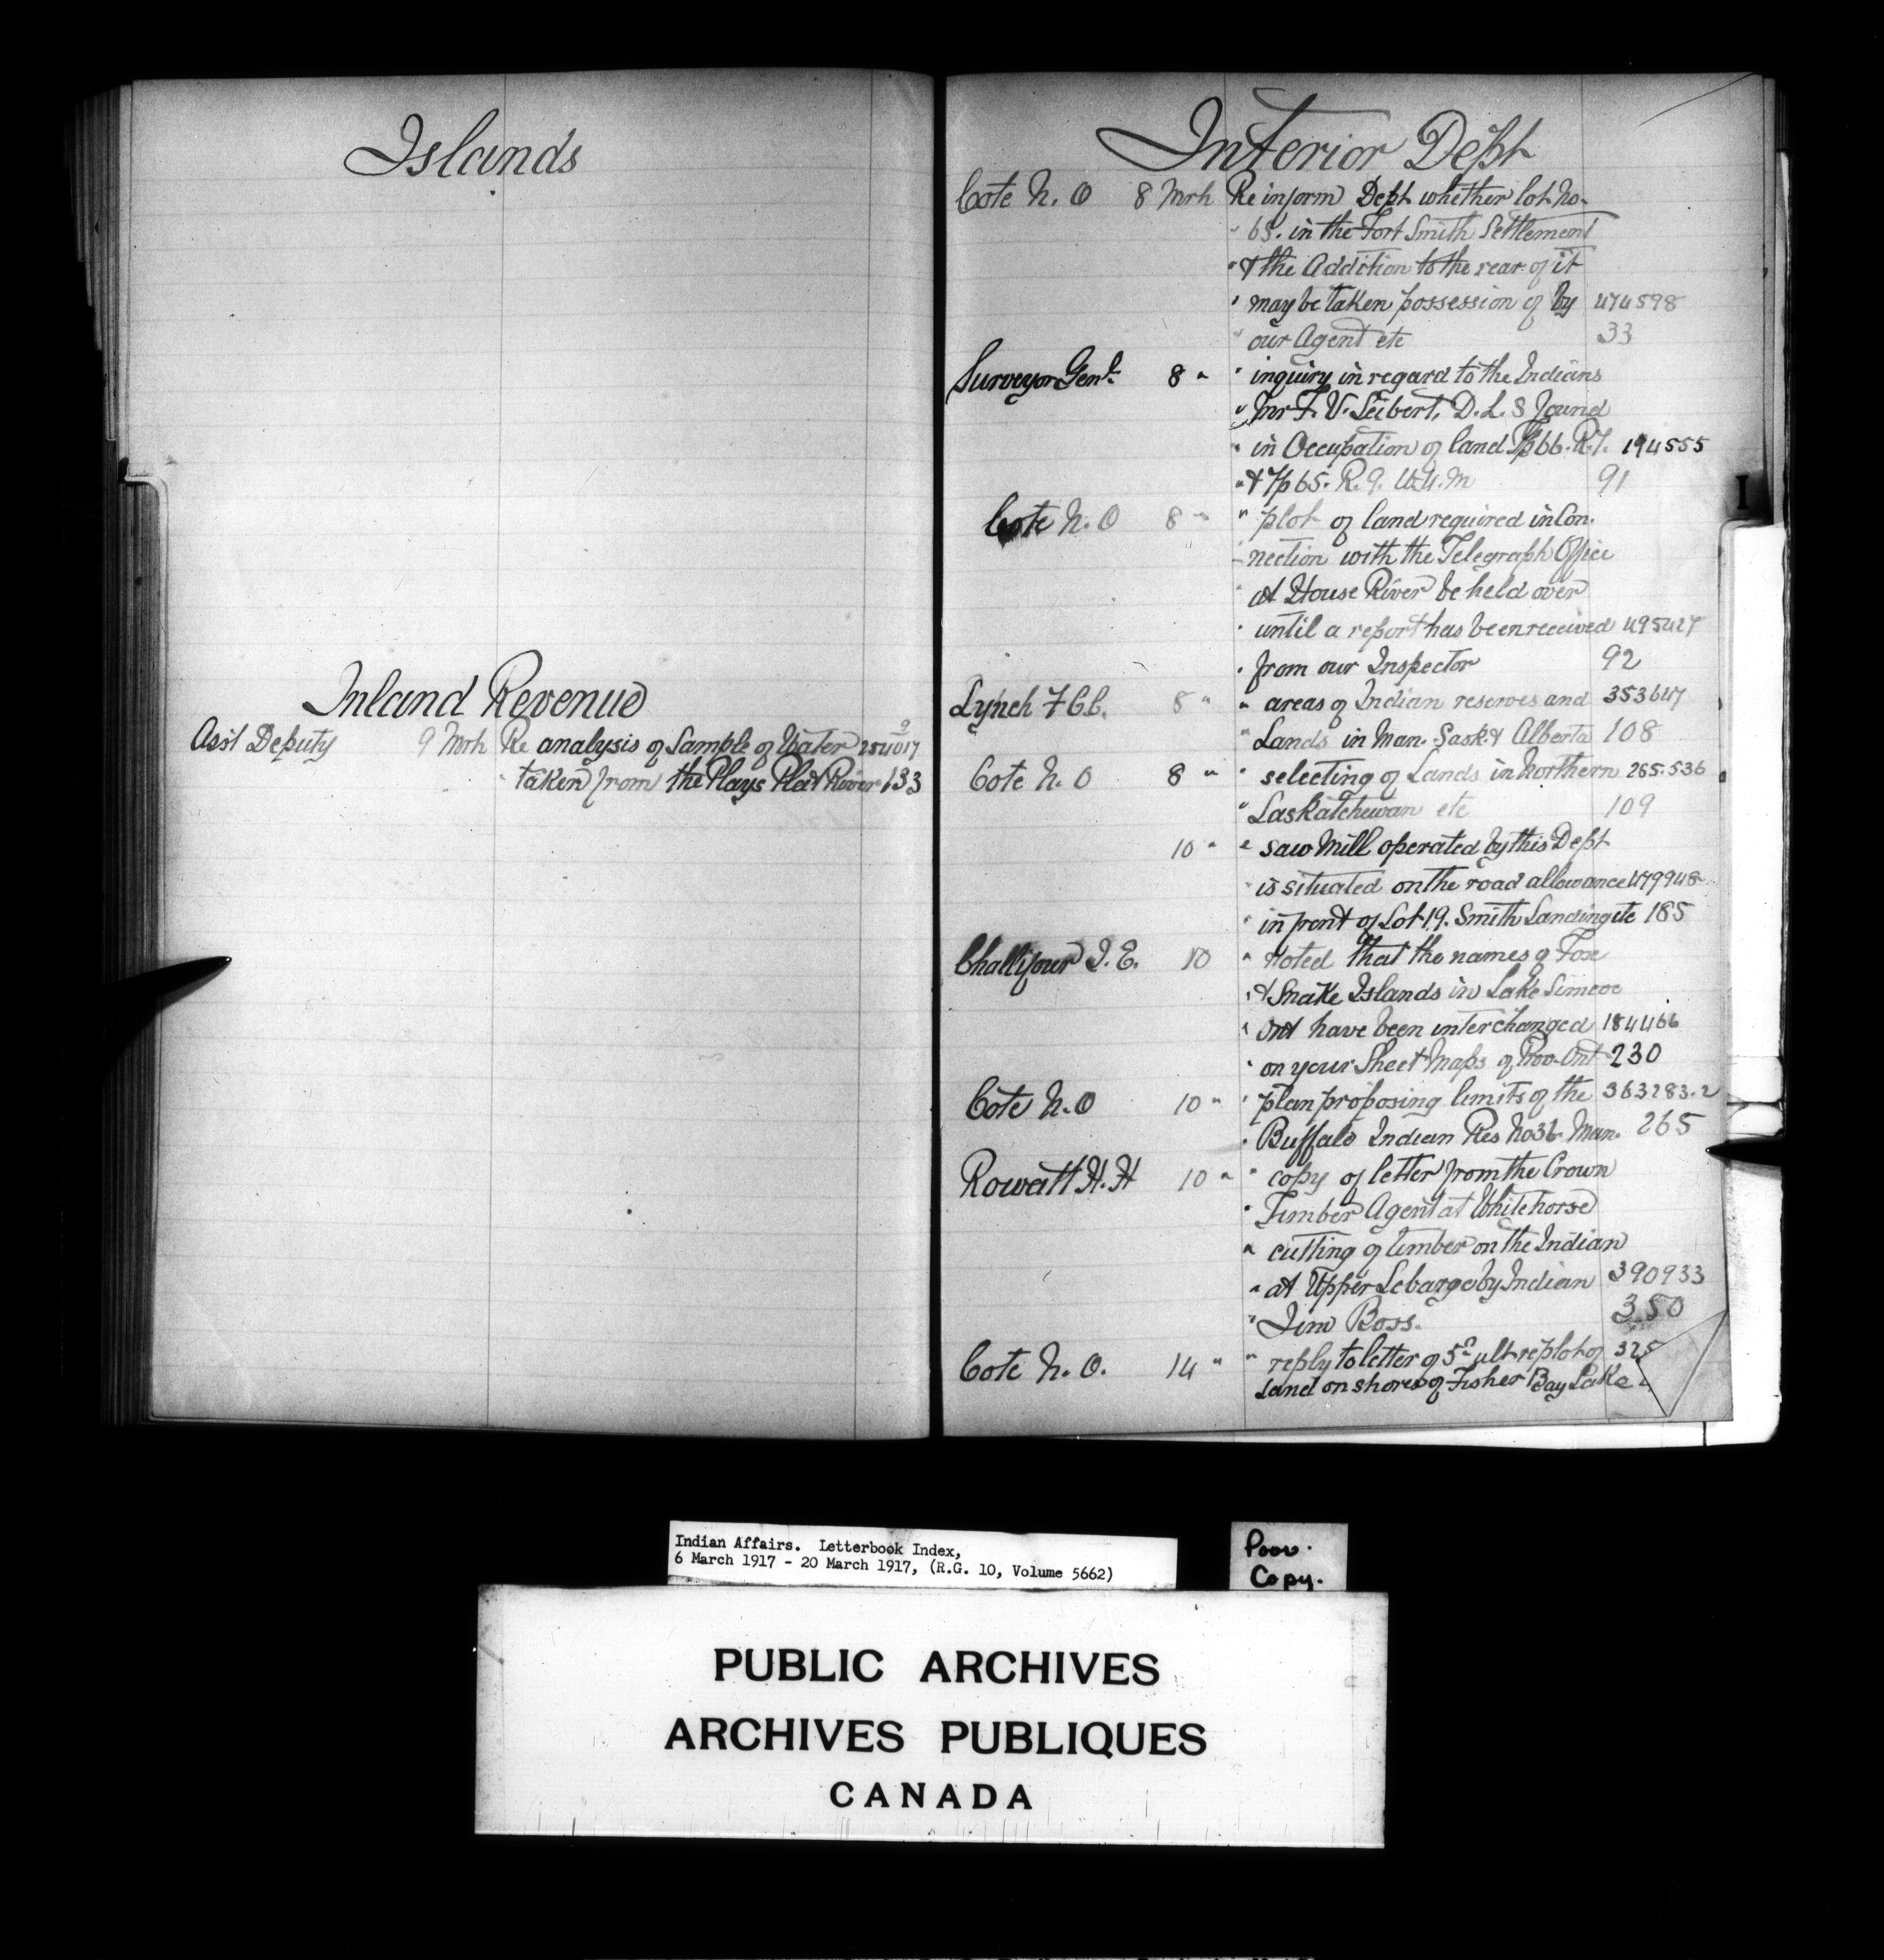 Islands
Inland Revenue
Ass't Deputy 9 Mrh Re analysis of Sample of Water 254017
" taken from the Plays Plat River 133
Interior Dept
Cote N. O 8 Mrh Re inform Dept whether lot No.
" 65. in the Fort Smith Settlement
" & the Addition to the rear of it
" may be taken possession of by 474598
" our Agent etc 33
Surveyor Genl. 8 " " inquiry in regard to the Indians
" Mr F. V. Seibert, D. L. S found
" in Occupation of land Tp 66. R. 7. 194555
" & Tp 65. R. 9. W.4.M 91
Cote N. O 8 " " plot of land required in Con-
- nection with the Telegraph Office
" at House River be held over
" until a report has been received 495427
" from our Inspector 92
Lynch F C C. 8 " " areas of Indian reserves and 353647
" Lands in Man. Sask & Alberta 108
Cote N. O 8 " " selecting of Lands in Northern 265.536
" Saskatchewan etc 109
10 " " saw Mill operated by this Dept
" is situated on the road allowance 479948
" in front of Lot 19. Smith Landing etc 185
Challifour J. E. 10 " Noted that the names of Fox
" & Snake Islands in Lake Simcoe
" Ont have been interchanged 184466
" on your Sheet Maps of Prov. Ont 230
Cote N. O 10 " " plan proposing limits of the 363283.2
" Buffalo Indian Res No 36 Man. 265
Rowatt H. H 10 " " copy of letter from the Crown
" Timber Agent at Whitehorse
" cutting of timber on the Indian
" at Upper Lebarge by Indian 390933
" Jim Boss. 350
Cote N. O. 14 " " reply to letter of 5th ult re plot of 325
land on shores of Fisher Bay Lake
I
Indian Affairs. Letterbook Index,
6 March 1917 - 20 March 1917, (R.G. 10, Volume 5662)
Poor.
Copy.
PUBLIC ARCHIVES
ARCHIVES PUBLIQUES
CANADA